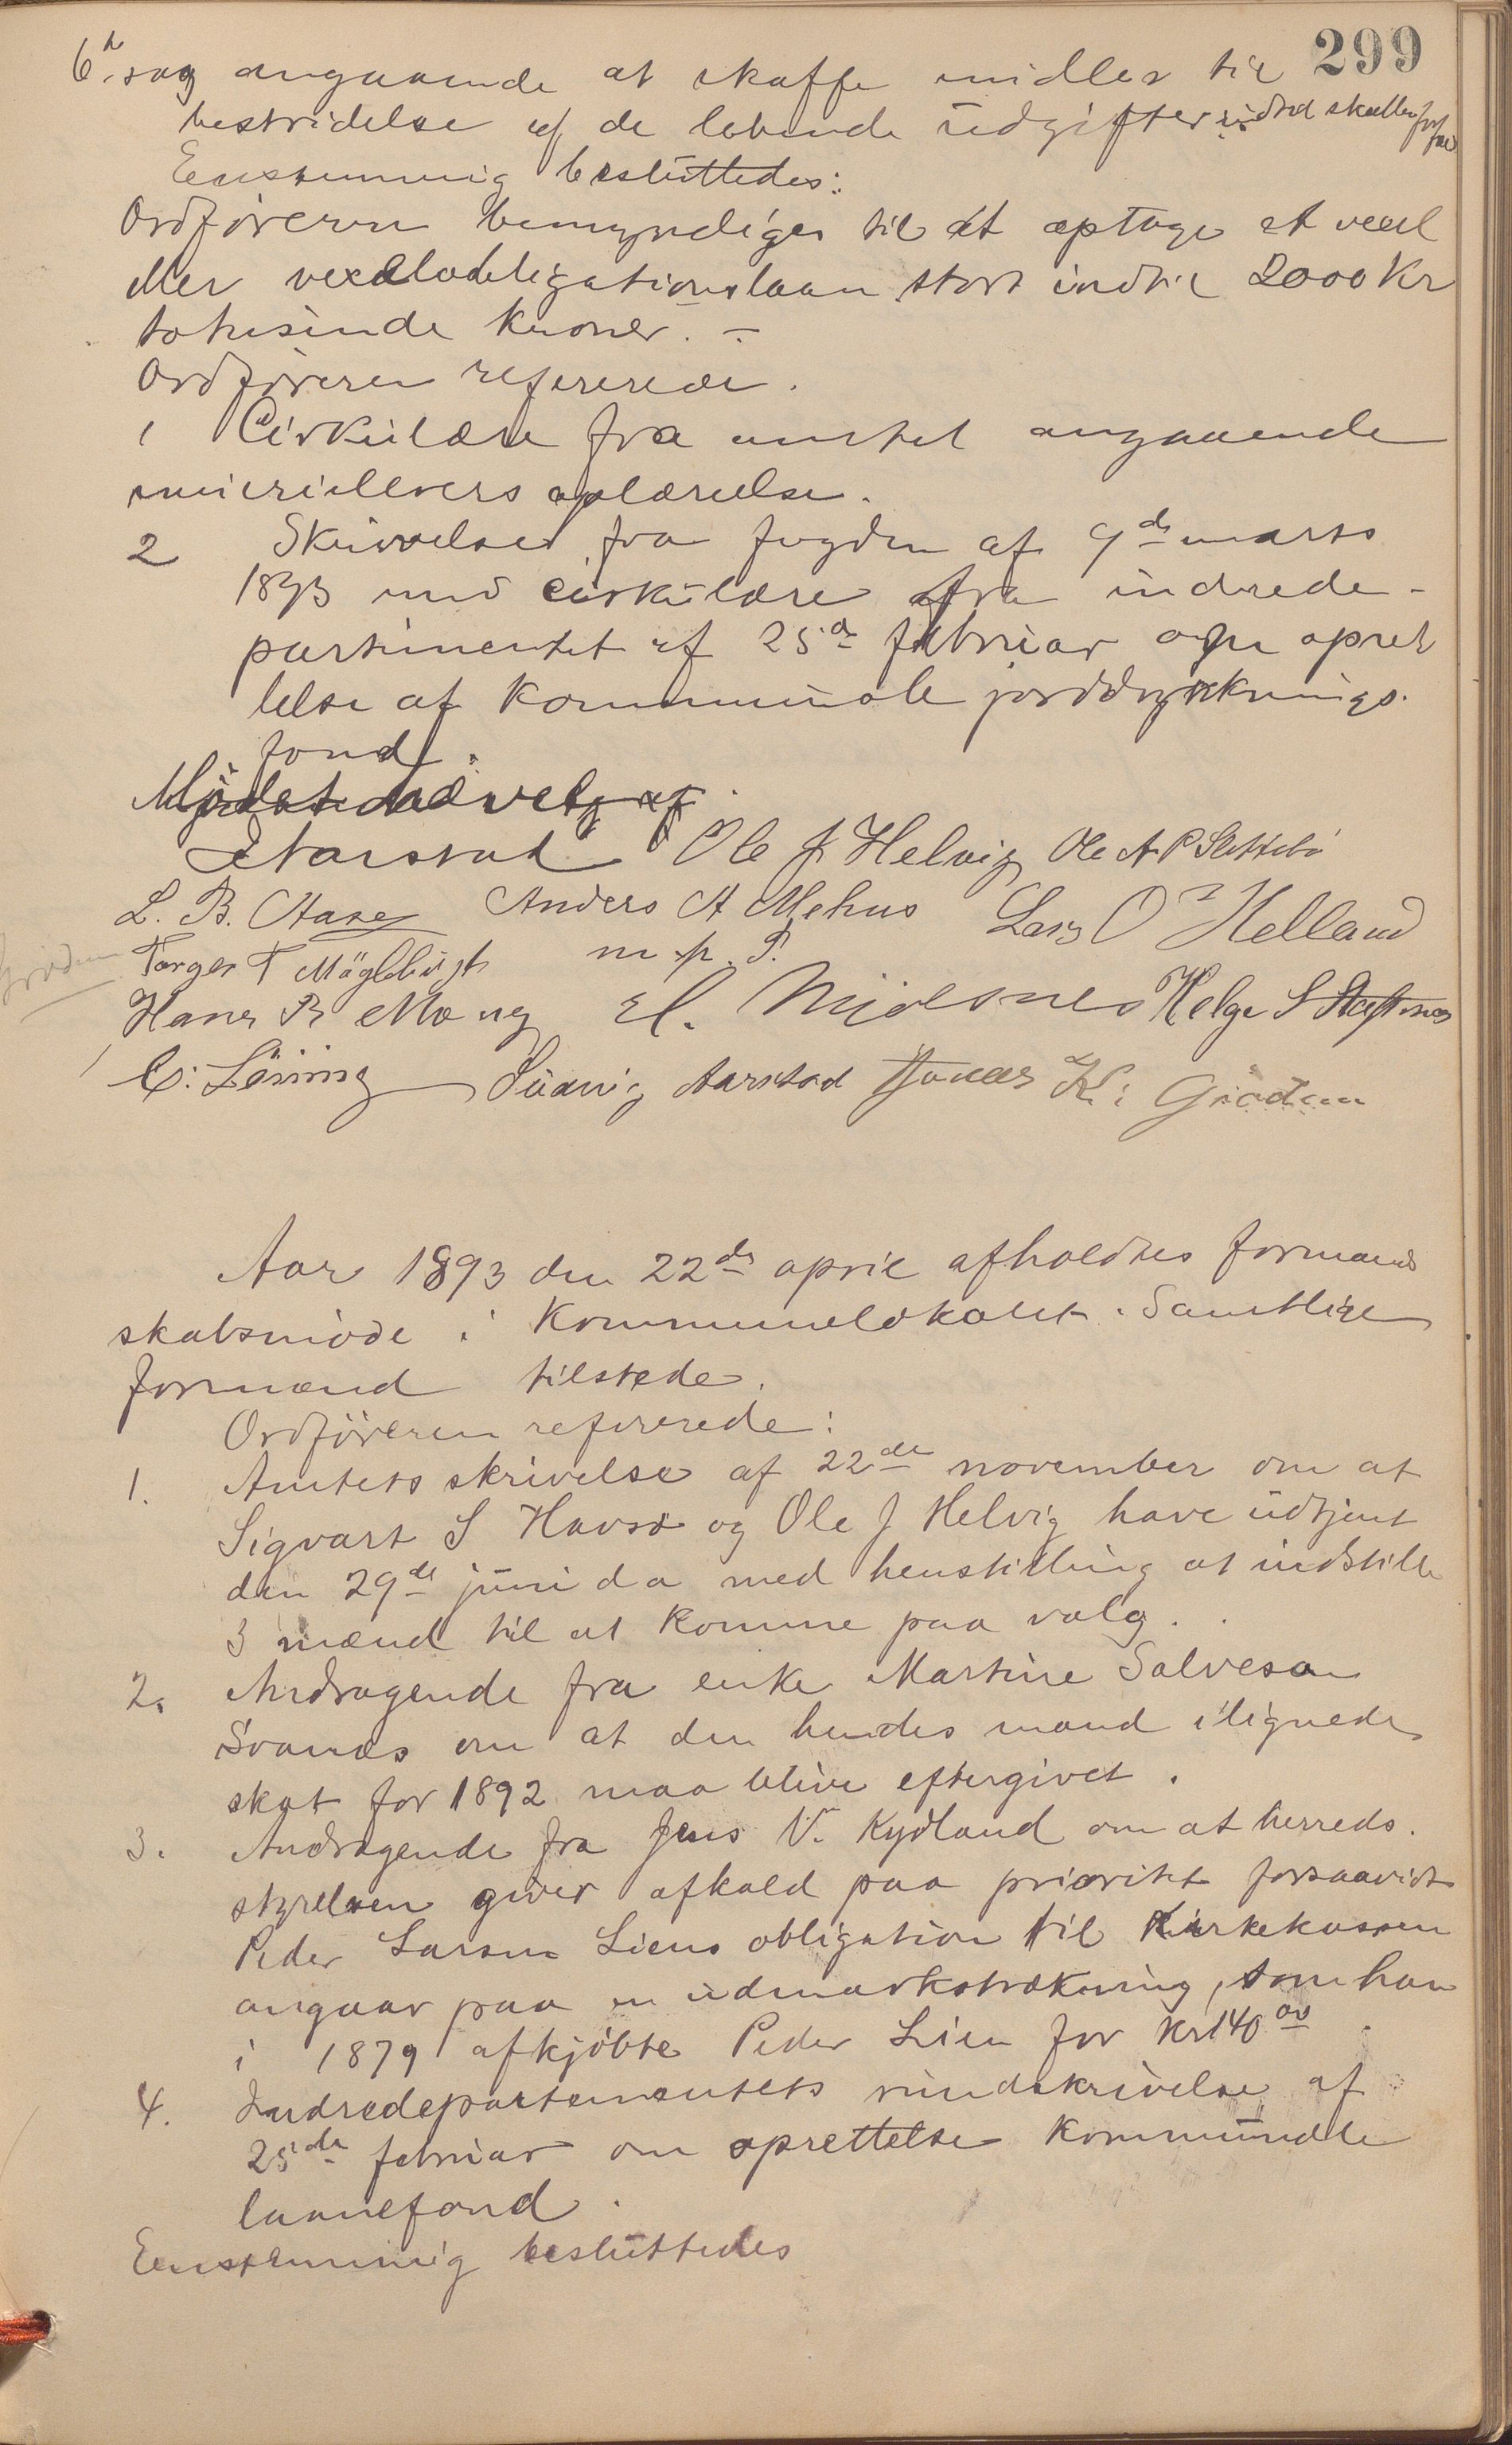 299
6te sag angaaende at skaffe midler til
bestridelse af de løbende udgifter indtil skatten forfal
Eenstemmig besluttedes:
Ordföreren bemyndiges til at optage et vexel
eller vexelobligationslaan stort indtil 2000 Kr
totusinde kroner. –
Ordföreren refererede.
1 Cirkulære fra amtet angaaende
meierielevers oplærelse.
2 Skrivvelse fra fogden af 9de marts
1893 med cirkulære fra indrede-
partimentet af 25de februar om opret
telse af kommunale jorddyrknings-
fond.
Mødet hævet
Aarstad Ole J Helvig Ole A P Slettebø
L. B. Aase Anders A Mehus Lars O Helland
Torger T Møglebust m. p. P.
Grødem
Hans R Mong H. Midsnes Helge S Stapnes
C: Löning Ludvig Aarstad Jonas K: Grödem
Aar 1893 den 22de april afholdtes formand
skabsmöde i Kommunelokalet. Samtlige
formænd tilstede.
Ordföreren refererede:
1. Amtets skrivelse af 22de november om at
Sigvart S Havsø og Ole J Helvig have udtjent
den 29de juni d a med henstilling at indstille
3 mænd til at komme paa valg.
2. Andragende fra enke Martine Salvesen
Svanes om at den hendes mand ilignede
skat for 1892 maa blive eftergivet.
3. Andragende fra Jens V. Kydland om at herreds-
styrelsen giver afkald paa prioritet forsaavidt
Peder Larsen Liens obligation til Kirkekassen
angaar paa en udmarkstrækning, som han
i 1879 afkjöbte Peder Lien for Kr 140 00.
4. Indredepartementets rundskrivelse af
25de februar om oprettelse kommunale
laanefond.
Eenstemmig besluttedes